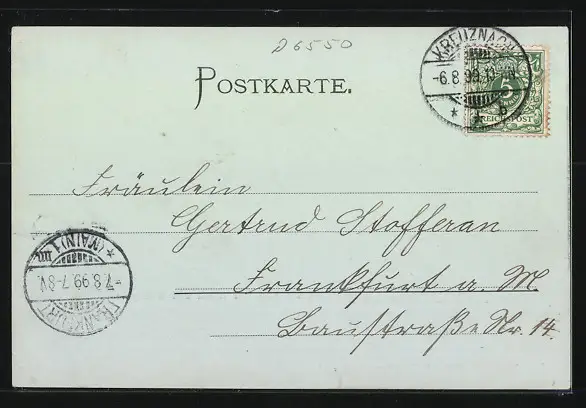 D6550
POSTKARTE.
KREUZNACH
-6.8.99.
b
5
REICHSPOST
Fräulein
Gertrud Stofferan
Frankfurt a. M
Baustraße Nr. 14.
FRANKFURT
-7.8.99.7-8V.
* (MAIN) 1 *